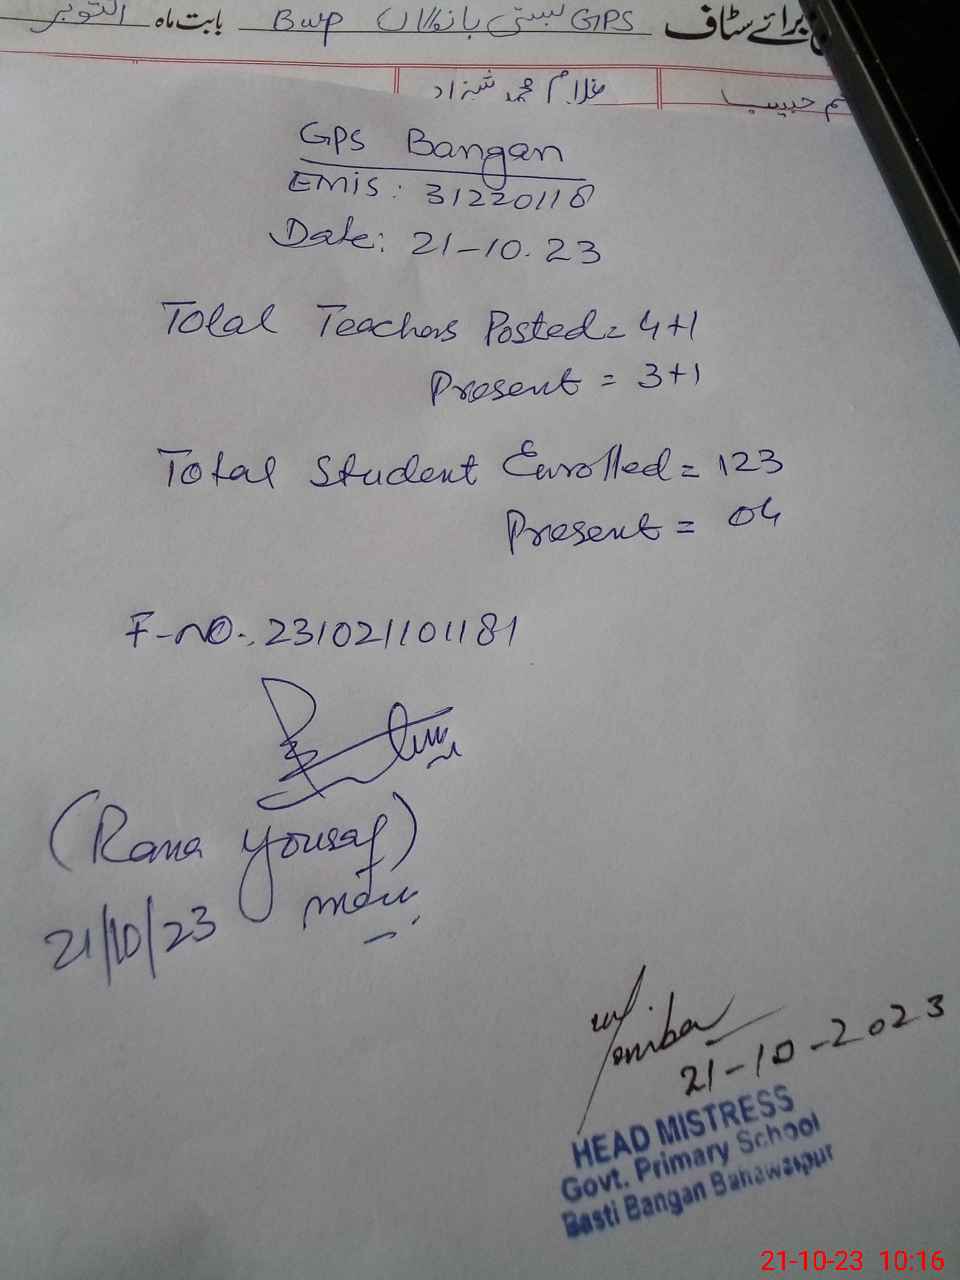 برائے سٹاف GPS بستی بانگاں Bwp بابت ماہ اکتوبر
غلام محمد شہزاد
GPS Bangan
EMIS: 31220118
Date: 21-10.23
Total Teachers Posted = 4+1
Present = 3+1
Total Student Enrolled = 123
Present = 04
F-NO. 231021101181
(Rana Yousaf)
21/10/23
21-10-2023
HEAD MISTRESS
Govt. Primary School
Basti Bangan Bahawalpur
21-10-23 10:16